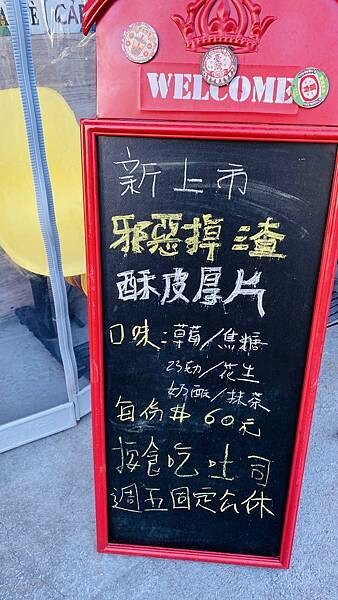 CAF
WELCOME
新上市
邪惡掉渣
酥皮厚片
口味:草莓/焦糖
巧幻/花生
奶酥/抹茶
每份# 60元
按食吃吐司
週五固定公休